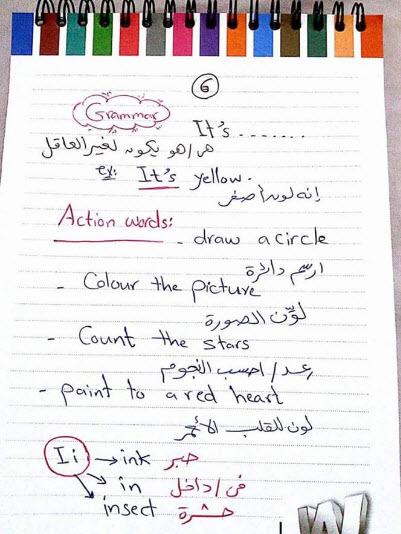 6
Grammar
It's .......
هى/هو يكون لغير العاقل
ex: It's yellow.
إنه لونه أصفر
Action words:
- draw a circle
ارسم دائرة
- Colour the picture
لوّن الصورة
- Count the stars
عد/احسب النجوم
- paint to a red heart
لون للقلب الأحمر
Ii → ink حبر
→ in فى/داخل
→ insect حشرة